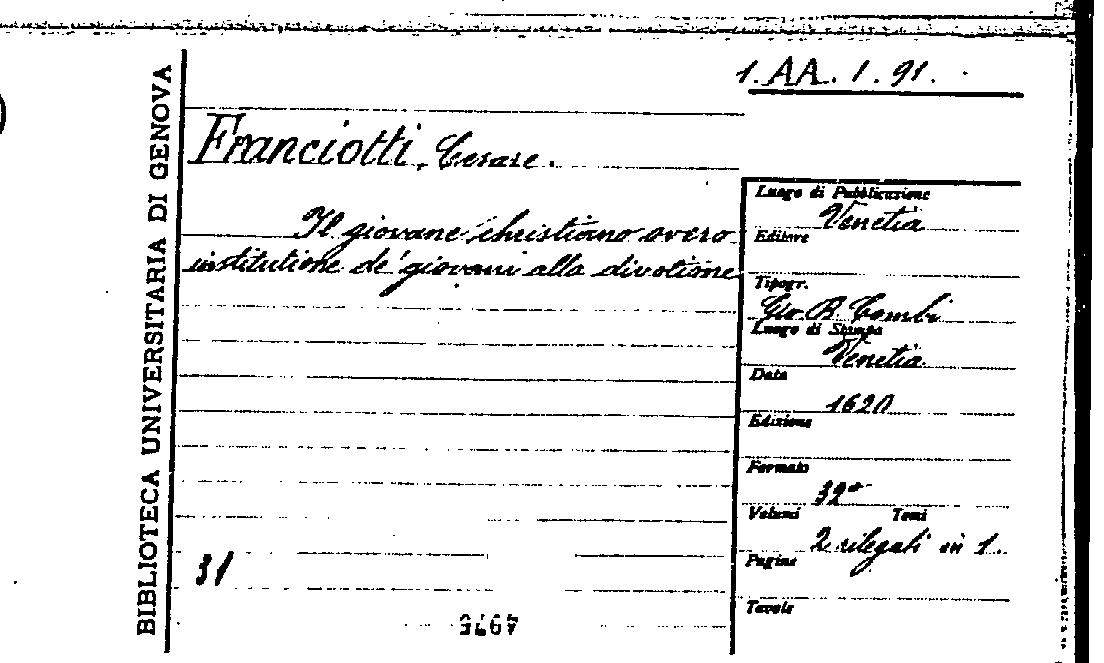 BIBLIOTECA UNIVERSITARIA DI GENOVA
1. AA. 1. 91.
Franciotti, Cesare.
Il giovane christiano overo
institutione de' giovani alla divotione
Luogo di Pubblicazione
Venetia
Editore
Tipogr.
Gio. B. Combi
Luogo di Stampa
Venetia
Data
1620
Edizione
Formato
32°
Volumi Tomi
2 rilegati in 1.
Pagine
Tavole
31